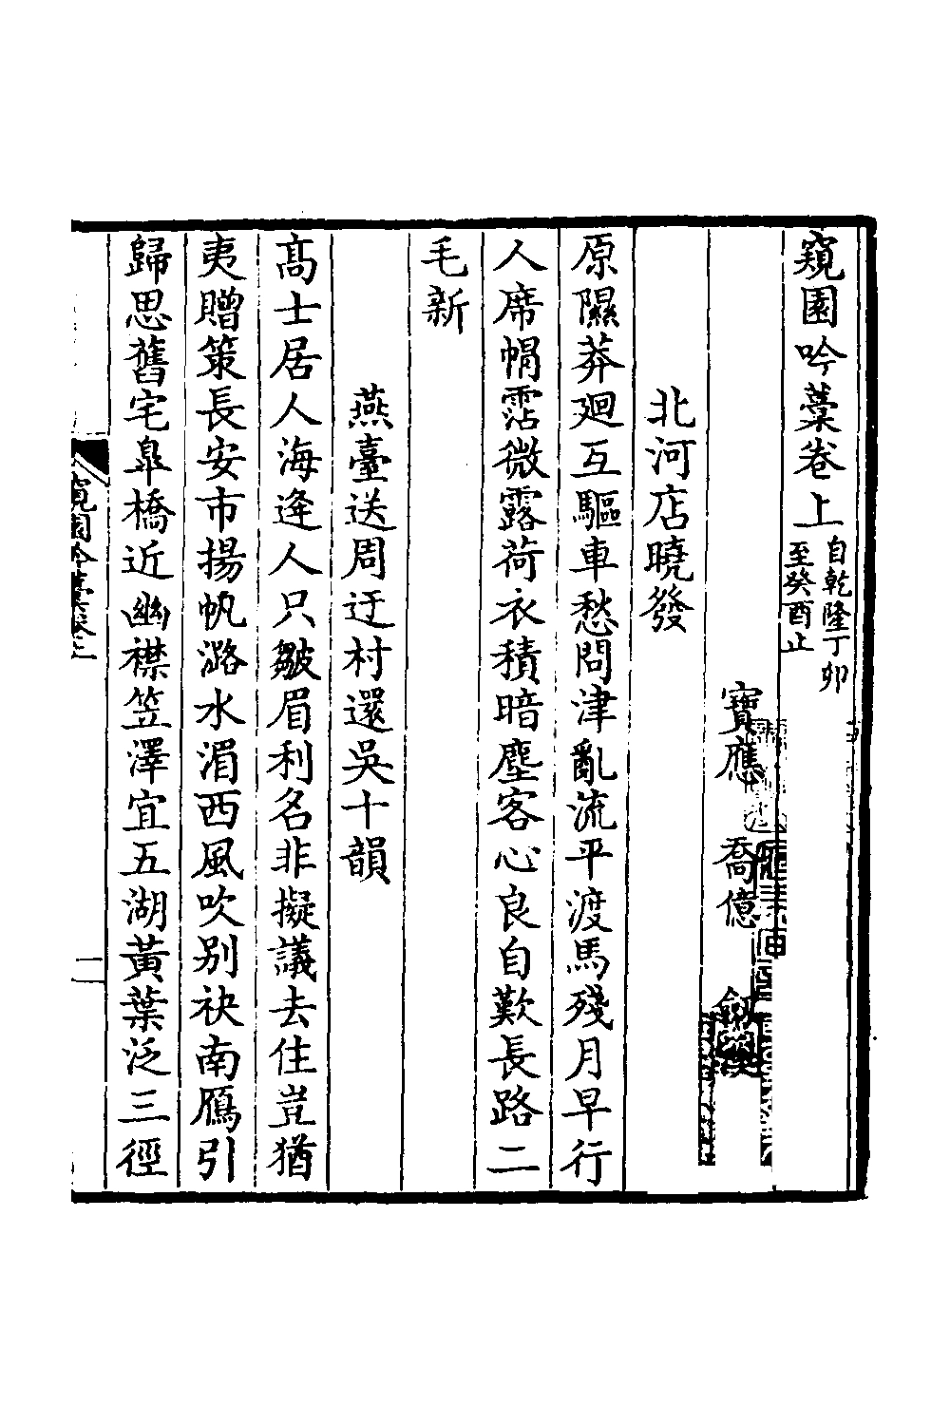 窺園吟藁卷上
自乾隆丁卯
至癸酉止
寶應 喬億 劔溪
北河店曉發
原隰莽廻互驅車愁問津亂流平渡馬殘月早行
人席㡌霑微露荷衣積暗塵客心良自歎長路二
毛新
燕臺送周迂村還吳十韻
高士居人海逢人只皺眉利名非擬議去住豈猶
夷贈策長安市揚帆潞水湄西風吹别袂南鴈引
歸思舊宅皐橋近幽襟笠澤宜五湖黃葉泛三徑
窺園吟藁卷上
一